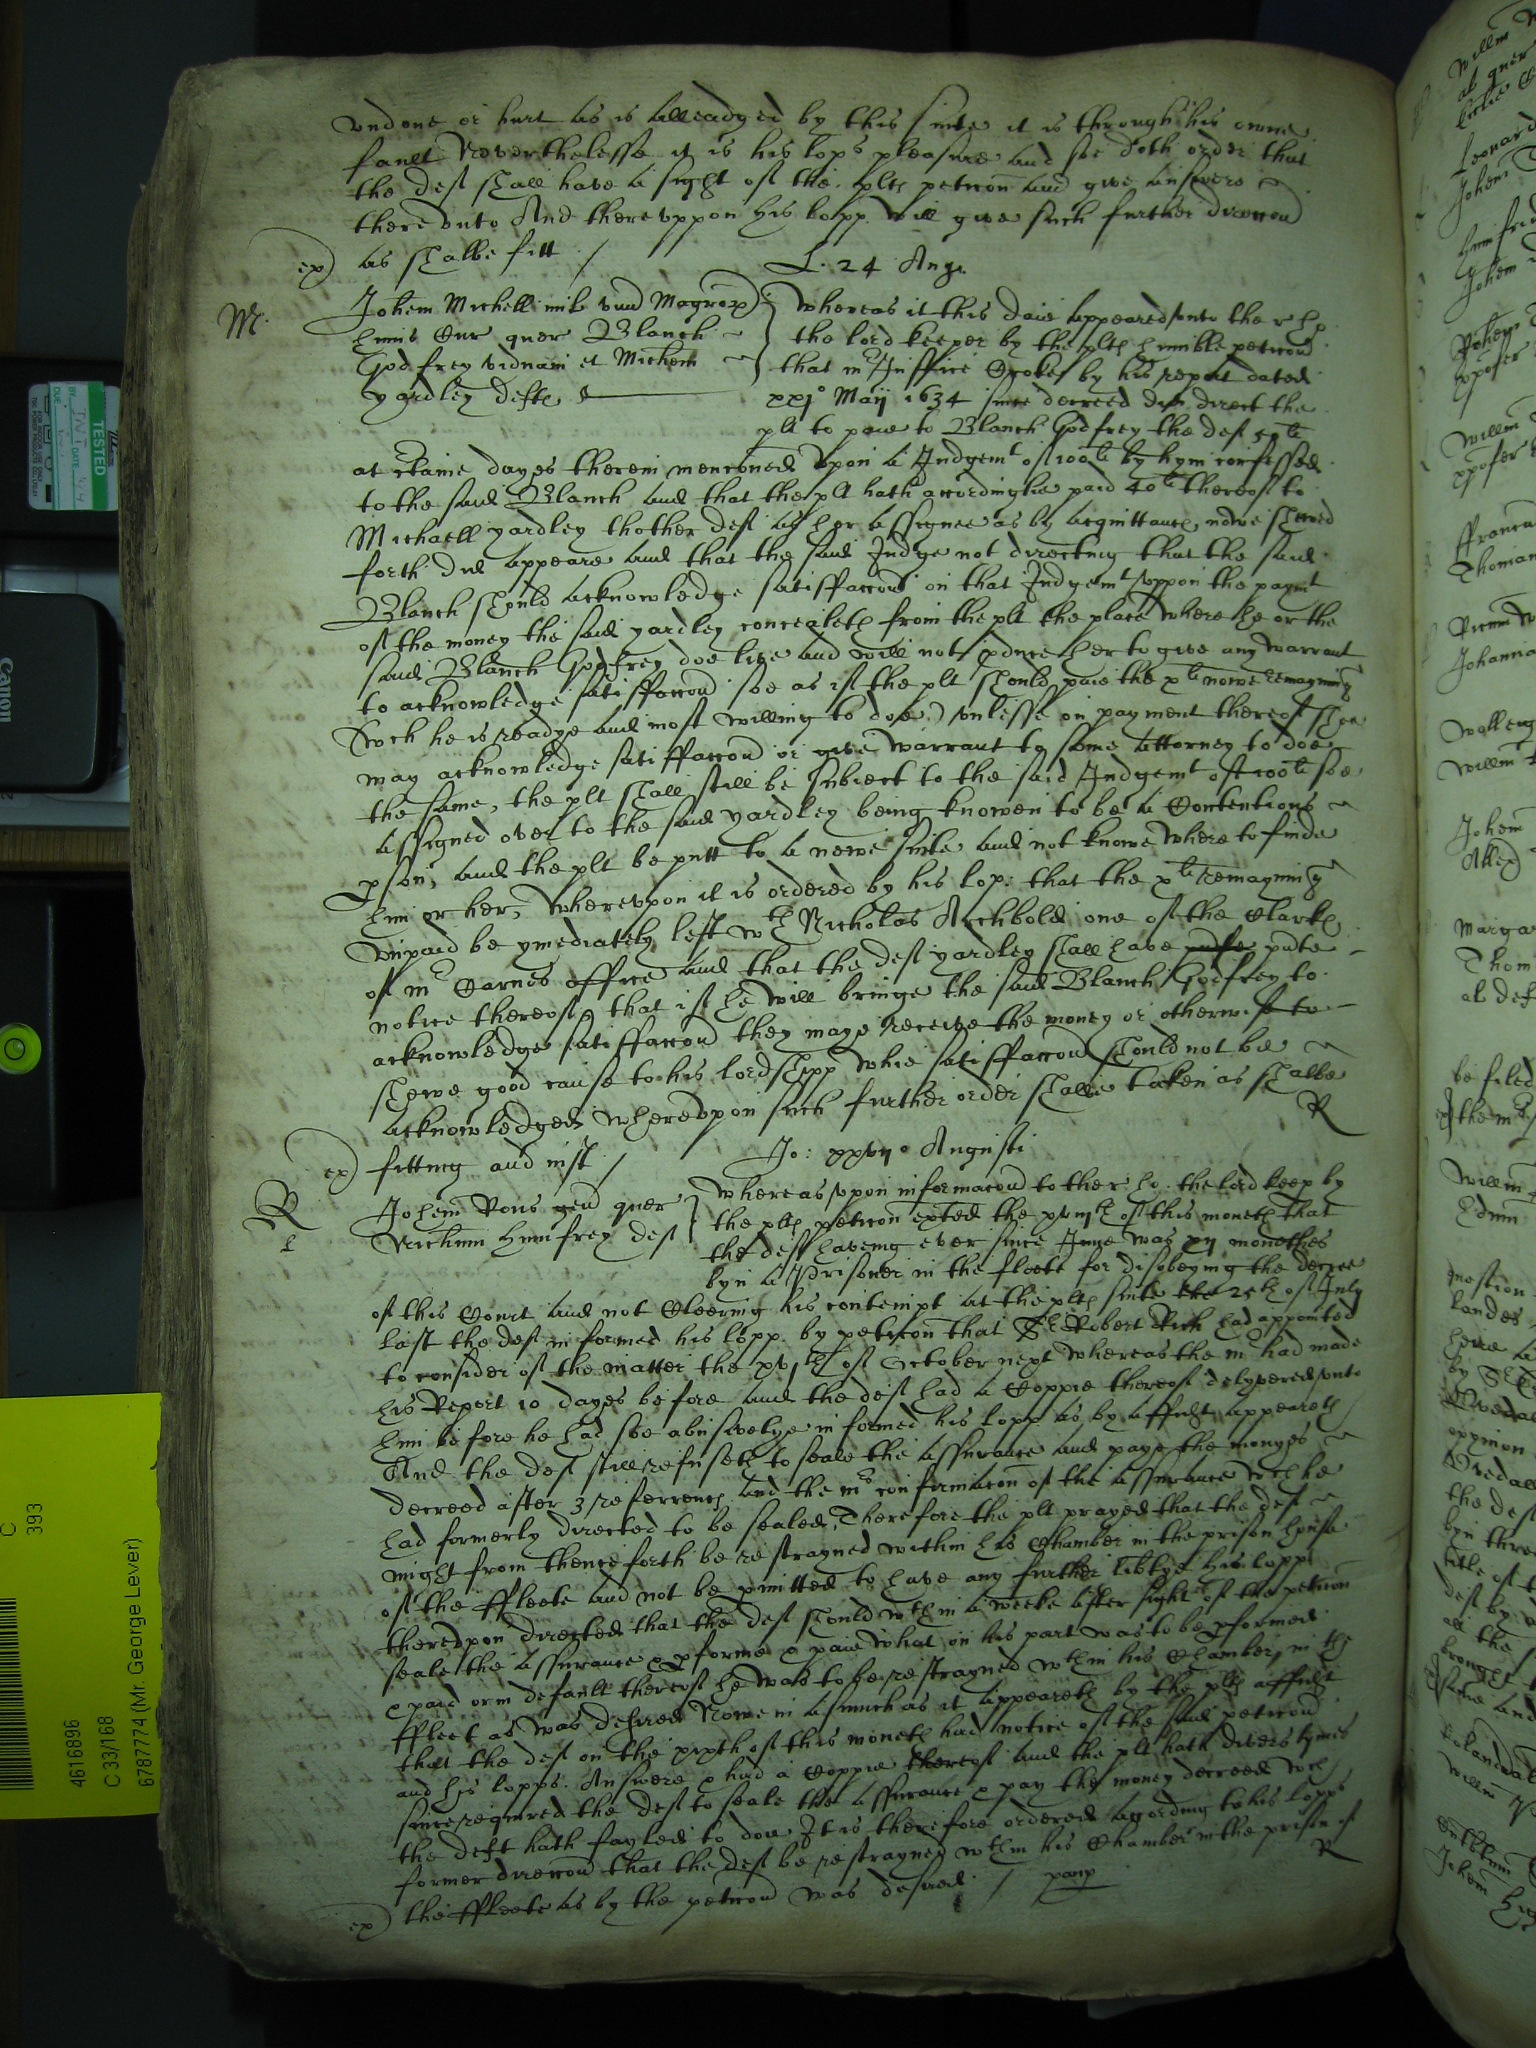 vndone or hurt as is alleadged by this suite it is through his owne
fault Neverthelesse it is his lops pleasure and soe doth order that
the deft shall have a sight of the plts peticon and give answere
therevnto And therevppon his lopp will give such further direccon
ex) as shalbe fitt /
L. 24 Aug.
M.
Johem Michell mil vnu Magrorum
Cur quer Blanch
Godfrey viduam et Michem
yardley defts
Whereas it this daie appeared vnto the r. ho.
the lord keeper by the plts humble peticon
that mr Justice Crooke by his report dated
xxjo Maij 1634 since decreed did direct the
plt to paie to Blanch Godfrey the deft 50li
at certaine dayes therein menconed vpon a Judgemt of 100li by hym confessed
to the said Blanch and that the plt hath accordinglie paid 40li thereof to
Michaell yardley thother deft as her assignee as by acquittance nowe shewed
forth did appeare and that the said Judge not directing that the said
Blanch should acknowledge satisfaccon on that Judgemt vppon the paymt
of the money the said yardley concealeth from the plt the place where he or the
said Blanch Godfrey doe live and will not pduce her to give any warrant
to acknowledge satisfaccon soe as if the plt should paie the xli nowe remayning
(wch he is readye and most willing to doe) vnlesse on payment thereof shee
may acknowledge satisfaccon or give warrant to some Attorney to doe
the same, the plt shall still be subiect to the said Judgemt of 100li soe
assigned over to the said yardley being knowen to be a Contentious
pson, and the plt be putt to a newe suite and not knowe where to finde
him or her, Wherevpon it is ordered by his lop: that the xli remayning
vnpaid be ymediately left wth Nicholas Archbold one of the Clarks
of mr Carnes office and that the deft yardley shall have pute
notice thereof, that if he will bringe the said Blanch Godfrey to
acknowledge satisfaccon they maye receive the money or otherwise to
shewe good cause to his lordshipp whie satisfaccon should not be
acknowledged wherevpon such further order shalbe taken as shalbe
ex) fitting and iust /
R
Jo: xxvijo Augusti
R
Johem Rous gen quer
Richum Humfrey deft
Whereas vpon informacon to the r. ho. the lord keep by
the plts peticon exted the xvijth of this moneth that
the deft haveing ever since June was xij monethes
byn a Prisoner in the fleete for disobeying the decree
of this Court and not Cleering his contempt at the plts suite the 25th of July
last the deft informed his lopp. by peticon that Sr Robert Rich had appointed
to consider of the matter the xvjth of October next whereas the mr had made
his Report 10 dayes before and the deft had a Coppie thereof delyvered vnto
him before he had soe abusivelye informed his lopp as by affidt appeareth
And the deft still refuseth to seale the assurance and paye the monyes
decreed after 3 references and the mrs confirmacon of the assurance wch he
had formerly directed to be sealed, Therefore the plt prayed that the deft
might from thenceforth be restrayned within his Chamber in the prison house
of the ffleete and not be pmitted to have any further libtye his lopp
therevpon directed that the deft should wthin a weeke after sight of the peticon
seale the assurance & pforme & paie what on his part was to be pformed
& paid or in default thereof he was to be restrayned wthin his Chamber in the
ffleet as was desired Nowe in asmuch as it appeareth by the plts affidt
that the deft on the xixth of this moneth had notice of the said peticon
and his lopps. Answere & had a Coppie thereof and the plt hath divers tymes
since required the deft to seale the assurance & pay the money decreed wch
the deft hath fayled to doe It is therefore ordered according to his lopps
former direccon that the deft be restrayned wthin his Chamber in the prison of
ex) the ffleete as by the peticon was desired. /
R
TESTED
Canon
C
393
4616896
C 33/168
6787774 (Mr. George Lever)